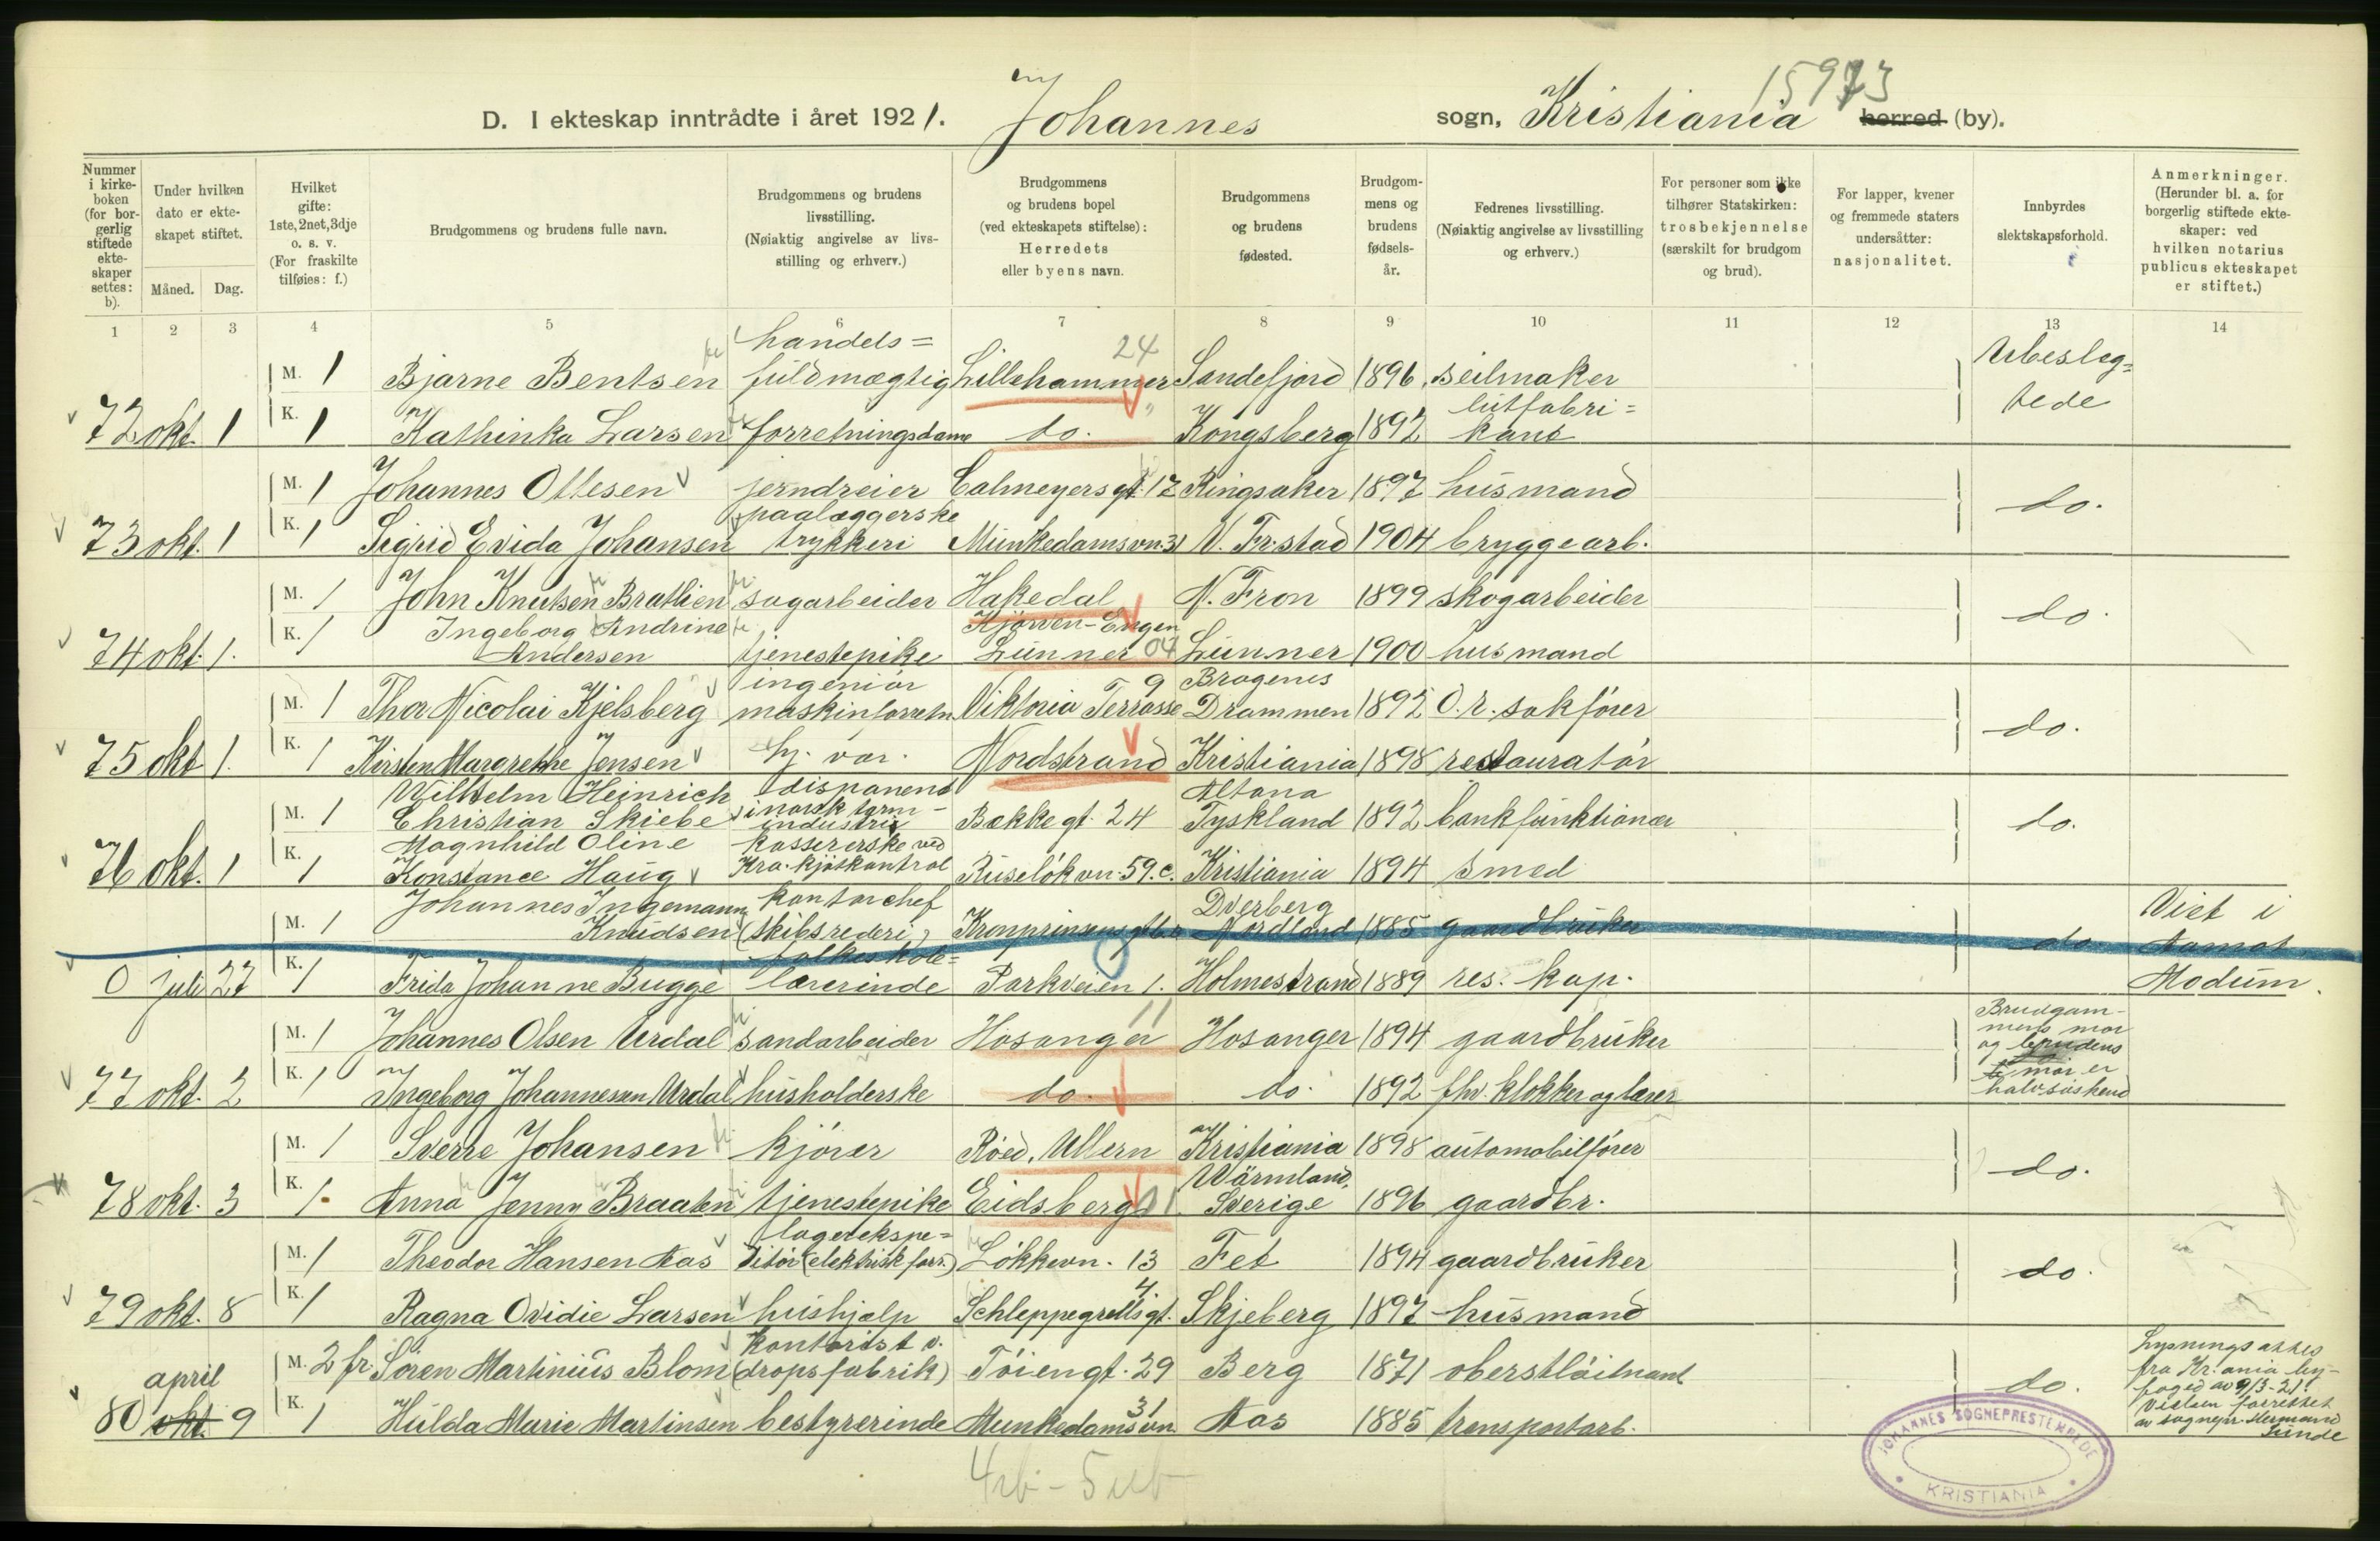 15973
D. I ekteskap inntrådte i året 1921. Johannes sogn, Kristiania herred (by).
Nummer i kirke-boken (for bor-gerlig stiftede ekte-skaper settes: b).
Under hvilken dato er ekte-skapet stiftet.
Måned. Dag.
Hvilket gifte: 1ste, 2net, 3dje o. s. v. (For fraskilte tilføies: f.)
Brudgommens og brudens fulle navn.
Brudgommens og brudens livsstilling. (Nøiaktig angivelse av livs-stilling og erhverv.)
Brudgommens og brudens bopel (ved ekteskapets stiftelse): Herredets eller byens navn.
Brudgommens og brudens fødested.
Brudgom-mens og brudens fødsels-år.
Fedrenes livsstilling. (Nøiaktig angivelse av livsstilling og erhverv.)
For personer som ikke tilhører Statskirken: trosbekjennelse (særskilt for brudgom og brud).
For lapper, kvener og fremmede staters undersåtter: nasjonalitet.
Innbyrdes slektskapsforhold.
Anmerkninger. (Herunder bl. a. for borgerlig stiftede ekte-skaper: ved hvilken notarius publicus ekteskapet er stiftet.)
1 2 3 4 5 6 7 8 9 10 11 12 13 14
handels= 24 Ubeslæg=
M. 1 Bjarne Bentsen fuldmægtig Lillehammer Sandefjord 1896 seilmaker tede
lutfabri=
72 okt. 1 K. 1 Kathinka Larsen forretningsdame do. Kongsberg 1892 kant
M. 1 Johannes Ottesen jerndreier Calmeyersgt. 17 Ringsaker 1897 husmand do.
paalæggerske
73 okt. 1 K. 1 Sigrid Evida Johansen trykkeri Munkedamsvn. 31 V. Fr.stad 1904 bryggearb.
M. 1 John Knutsen Bratlien sagarbeider Hakedal N. Fron 1899 skogarbeider do.
Ingeborg Andrine Kjørven-Engen
74 okt. 1. K. 1 Andersen tjenestepike Lunner 04 Lunner 1900 husmand
ingeniør 9 Bragenes
M. 1 Thor Nicolai Kjelsberg maskinforretn. Viktoria Terrasse Drammen 1892 O.r. sakfører do.
75 okt 1. K. 1 Kirsten Margrethe Jensen hj. vær. Nordstrand Kristiania 1898 restauratør
Wilhelm Heinrich disponent Altona
M. 1 Christian Skiebe i norsk form-industri Bakkegt. 24 Tyskland 1892 bankfunktionær do.
Magnhild Oline kassererske ved
76 okt. 1 K. 1 Konstance Haug Kra. kjøtkontrol Ruseløkvn. 59.c. Kristiania 1894 smed
Johannes Ingemann kontorchef Dverberg Viet i
M. 1 Knudsen (skibsrederi) Nordland 1885 gaardbruker do Aamot
folkeskole=
0 juli 27 K. 1 Frida Johanne Bugge lærerinde Parkveien 1. Holmestrand 1889 res. kap. Modum.
11 Brudgom-
M. 1 Johannes Olsen Urdal sandarbeider Hosanger Hosanger 1894 gaardbruker mens mor
og brudens
mor er
77 okt. 2 K. 1 Ingeborg Johannesen Urdal husholderske do. do. 1892 fhv. klokker og lærer halvsøskend
M. 1 Sverre Johansen kjører Røed, Ullern Kristiania 1898 automobilfører do.
Wärmland,
78 okt. 3 K. 1 Anna Jenny Braaten tjenestepike Eidsberg 01 Sverige 1896 gaardbr.
lagerekspe=
M. 1 Theodor Hansen Aas ditør (elektrisk forr.) Løkkevn. 13 Fet 1894 gaardbruker do.
4
79 okt. 8 K. 1 Ragna Ovidie Larsen hushjælp Schleppegrellsgt. Skjeberg 1897 husmand
kontorist v. Lysningsattes
M. 2 fr. Søren Martinius Blom (dropsfabrik) Tøiengt. 29 Berg 1871 oberstløitnant do. fra Kr.ania by-
april foged av 9/3-21.
31 Vielsen forrettet
80 okt. 9 K. 1 Hulda Marie Martinsen bestyrerinde Munkedamsvn. Aas 1885 transportarb. av sognepr. Hermand
Sunde
JOHANNES SOGNEPRESTEMBEDE
KRISTIANIA